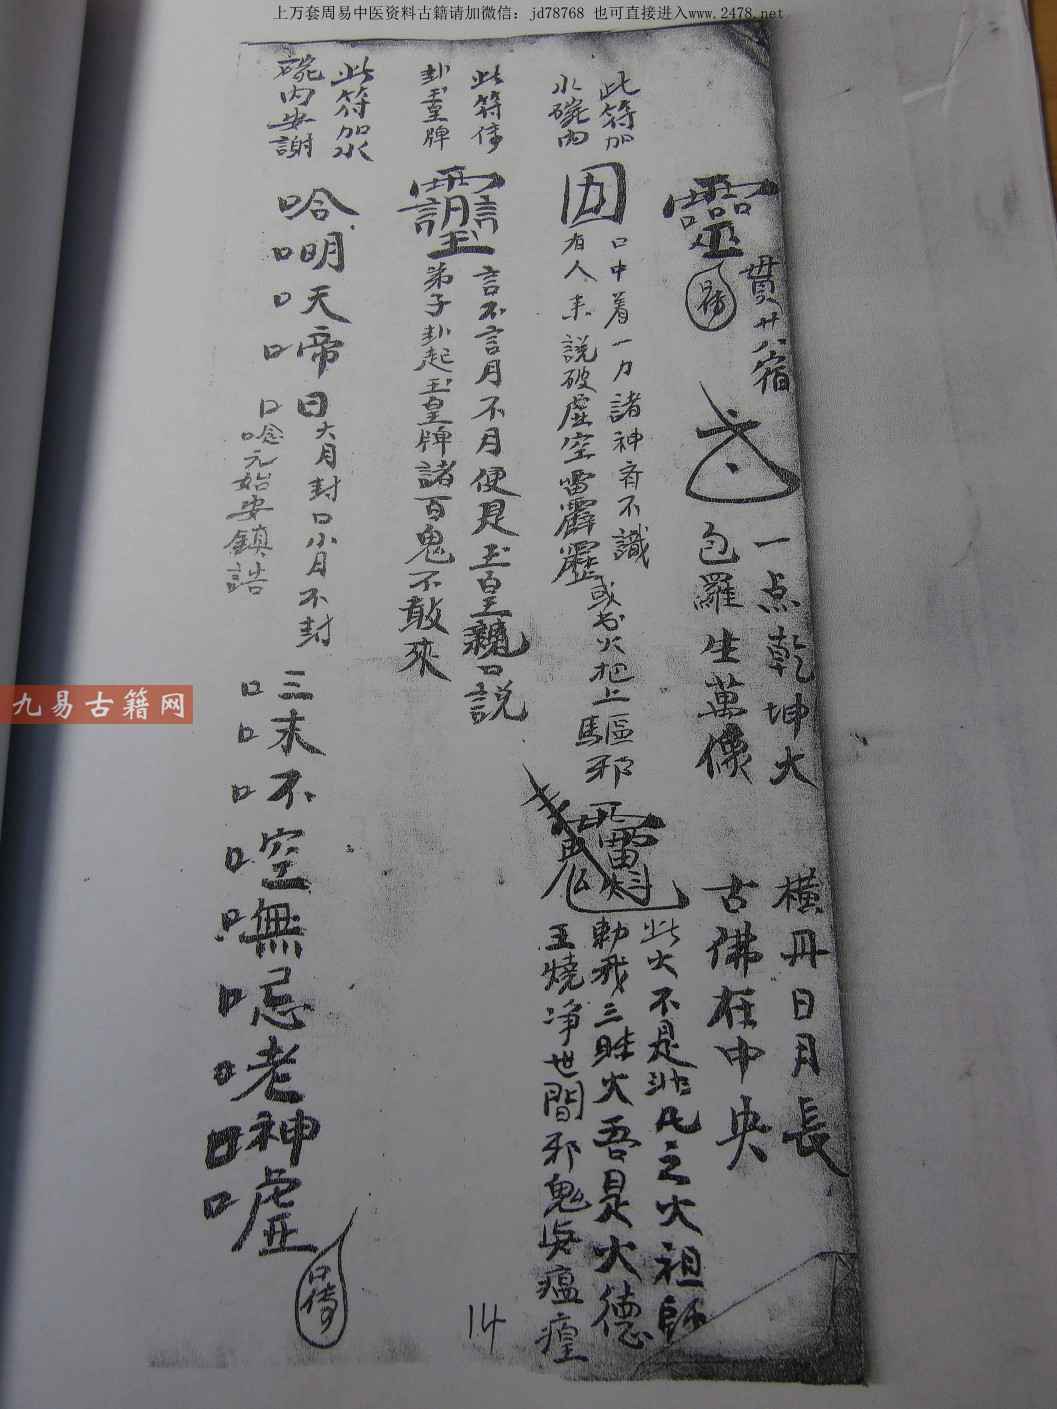 上万套周易中医资料古籍请加微信：jd78768 也可直接进入www.2478.net
貫廿八宿
一点乾坤大
橫丹日月長
包羅生萬像
古佛在中央
此符加
水碗內
口中着一力諸神斉不識
有人來說破虛空雷霹靂
或书火把上驅邪
此火不是非凡之火祖師
勅我三眛火吾是火德
王燒净世間邪鬼與瘟瘴
此符
卦玉皇牌
言不言月不月便是玉皇親口説
弟子卦起玉皇牌諸百鬼不敢來
此符加水
碗内安謝
哈明天帝
日大月封口小月不封
唸元始安鎮誥
三末不空無忌老神嘘
口傳
14
九易古籍网